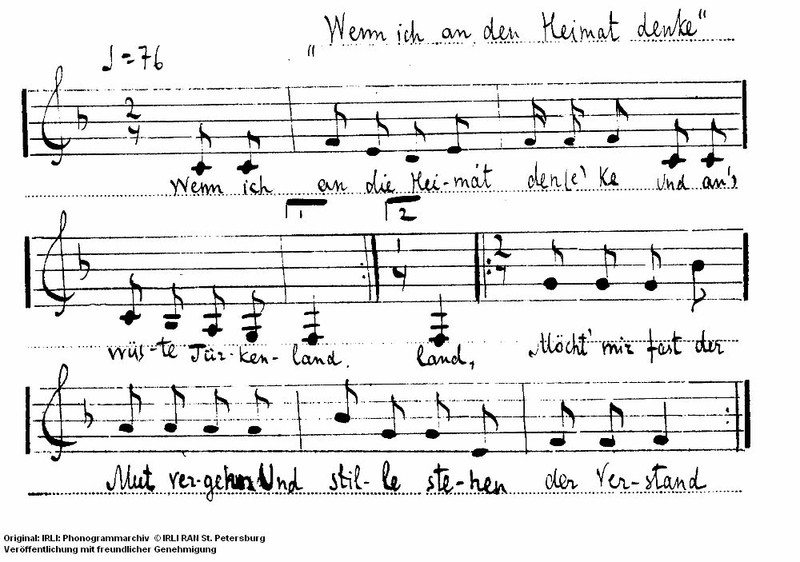 „Wenn ich an den Heimat denke“
♩ = 76
2
4
Wenn ich an die Hei-mat den(e)' Ke und an's
1 2
1
4
2
4
wüs-te Tür-ken-land. land, Möcht' mir fast der
Mut ver-gehn Und stil-le ste-hen der Ver-stand
Original: IRLI: Phonogrammarchiv © IRLI RAN St. Petersburg
Veröffentlichung mit freundlicher Genehmigung